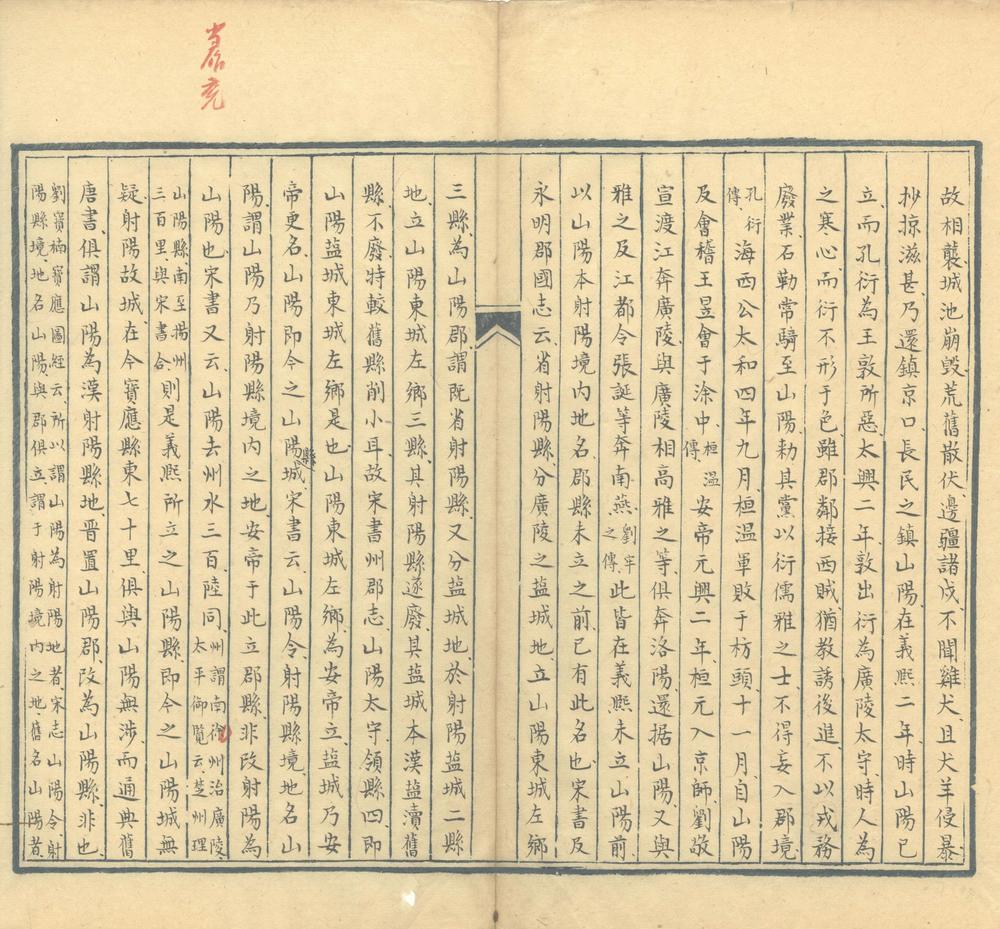 故相襲城池崩毀荒舊散伏邊疆諸戍不聞雞犬且犬羊侵暴
抄掠滋甚乃還鎮京口長民之鎮山陽在義熙二年時山陽已
立而孔衍為王敦所惡太興二年敦出衍為廣陵太守時人為
之寒心而衍不形于色雖郡鄰接西賊猶教誘後進不以戎務
廢業石勒常騎至山陽勅其黨以衍儒雅之士不得妄入郡境
孔衍傳海西公太和四年九月桓温軍敗于枋頭十一月自山陽
及會稽王昱會于涂中桓温傳安帝元興二年桓元入京師劉敬
宣渡江奔廣陵與廣陵相高雅之等俱奔洛陽還据山陽又與
雅之及江都令張誕等奔南燕劉牢之傳此皆在義熙未立山陽前
以山陽本射陽境內地名郡縣未立之前已有此名也宋書及
永明郡國志云省射陽縣分廣陵之盐城地立山陽東城左鄉
三縣為山陽郡謂既省射陽縣又分盐城地於射陽盐城二縣
地立山陽東城左鄉三縣其射陽縣遂廢其盐城本漢盐瀆舊
縣不廢特較舊縣削小耳故宋書州郡志山陽太守領縣四即
山陽盐城東城左鄉是也山陽東城左鄉為安帝立盐城乃安
帝更名山陽即今之山陽縣城宋書云山陽令射陽縣境地名山
陽謂山陽乃射陽縣境內之地安帝于此立郡縣非改射陽為
山陽也宋書又云山陽去州水三百陸同州謂南徐州治廣陵太平御覽云楚州理
山陽縣南至揚州三百里與宋書合則是義熙所立之山陽縣即今之山陽城無
疑射陽故城在今寶應縣東七十里俱與山陽無涉而通典舊
唐書俱謂山陽為漢射陽縣地晋置山陽郡改為山陽縣非也
劉寶楠寶應圖經云所以謂山陽為射陽地者宋志山陽令射
陽縣境地名山陽與郡俱立謂于射陽境內之地舊名山陽者